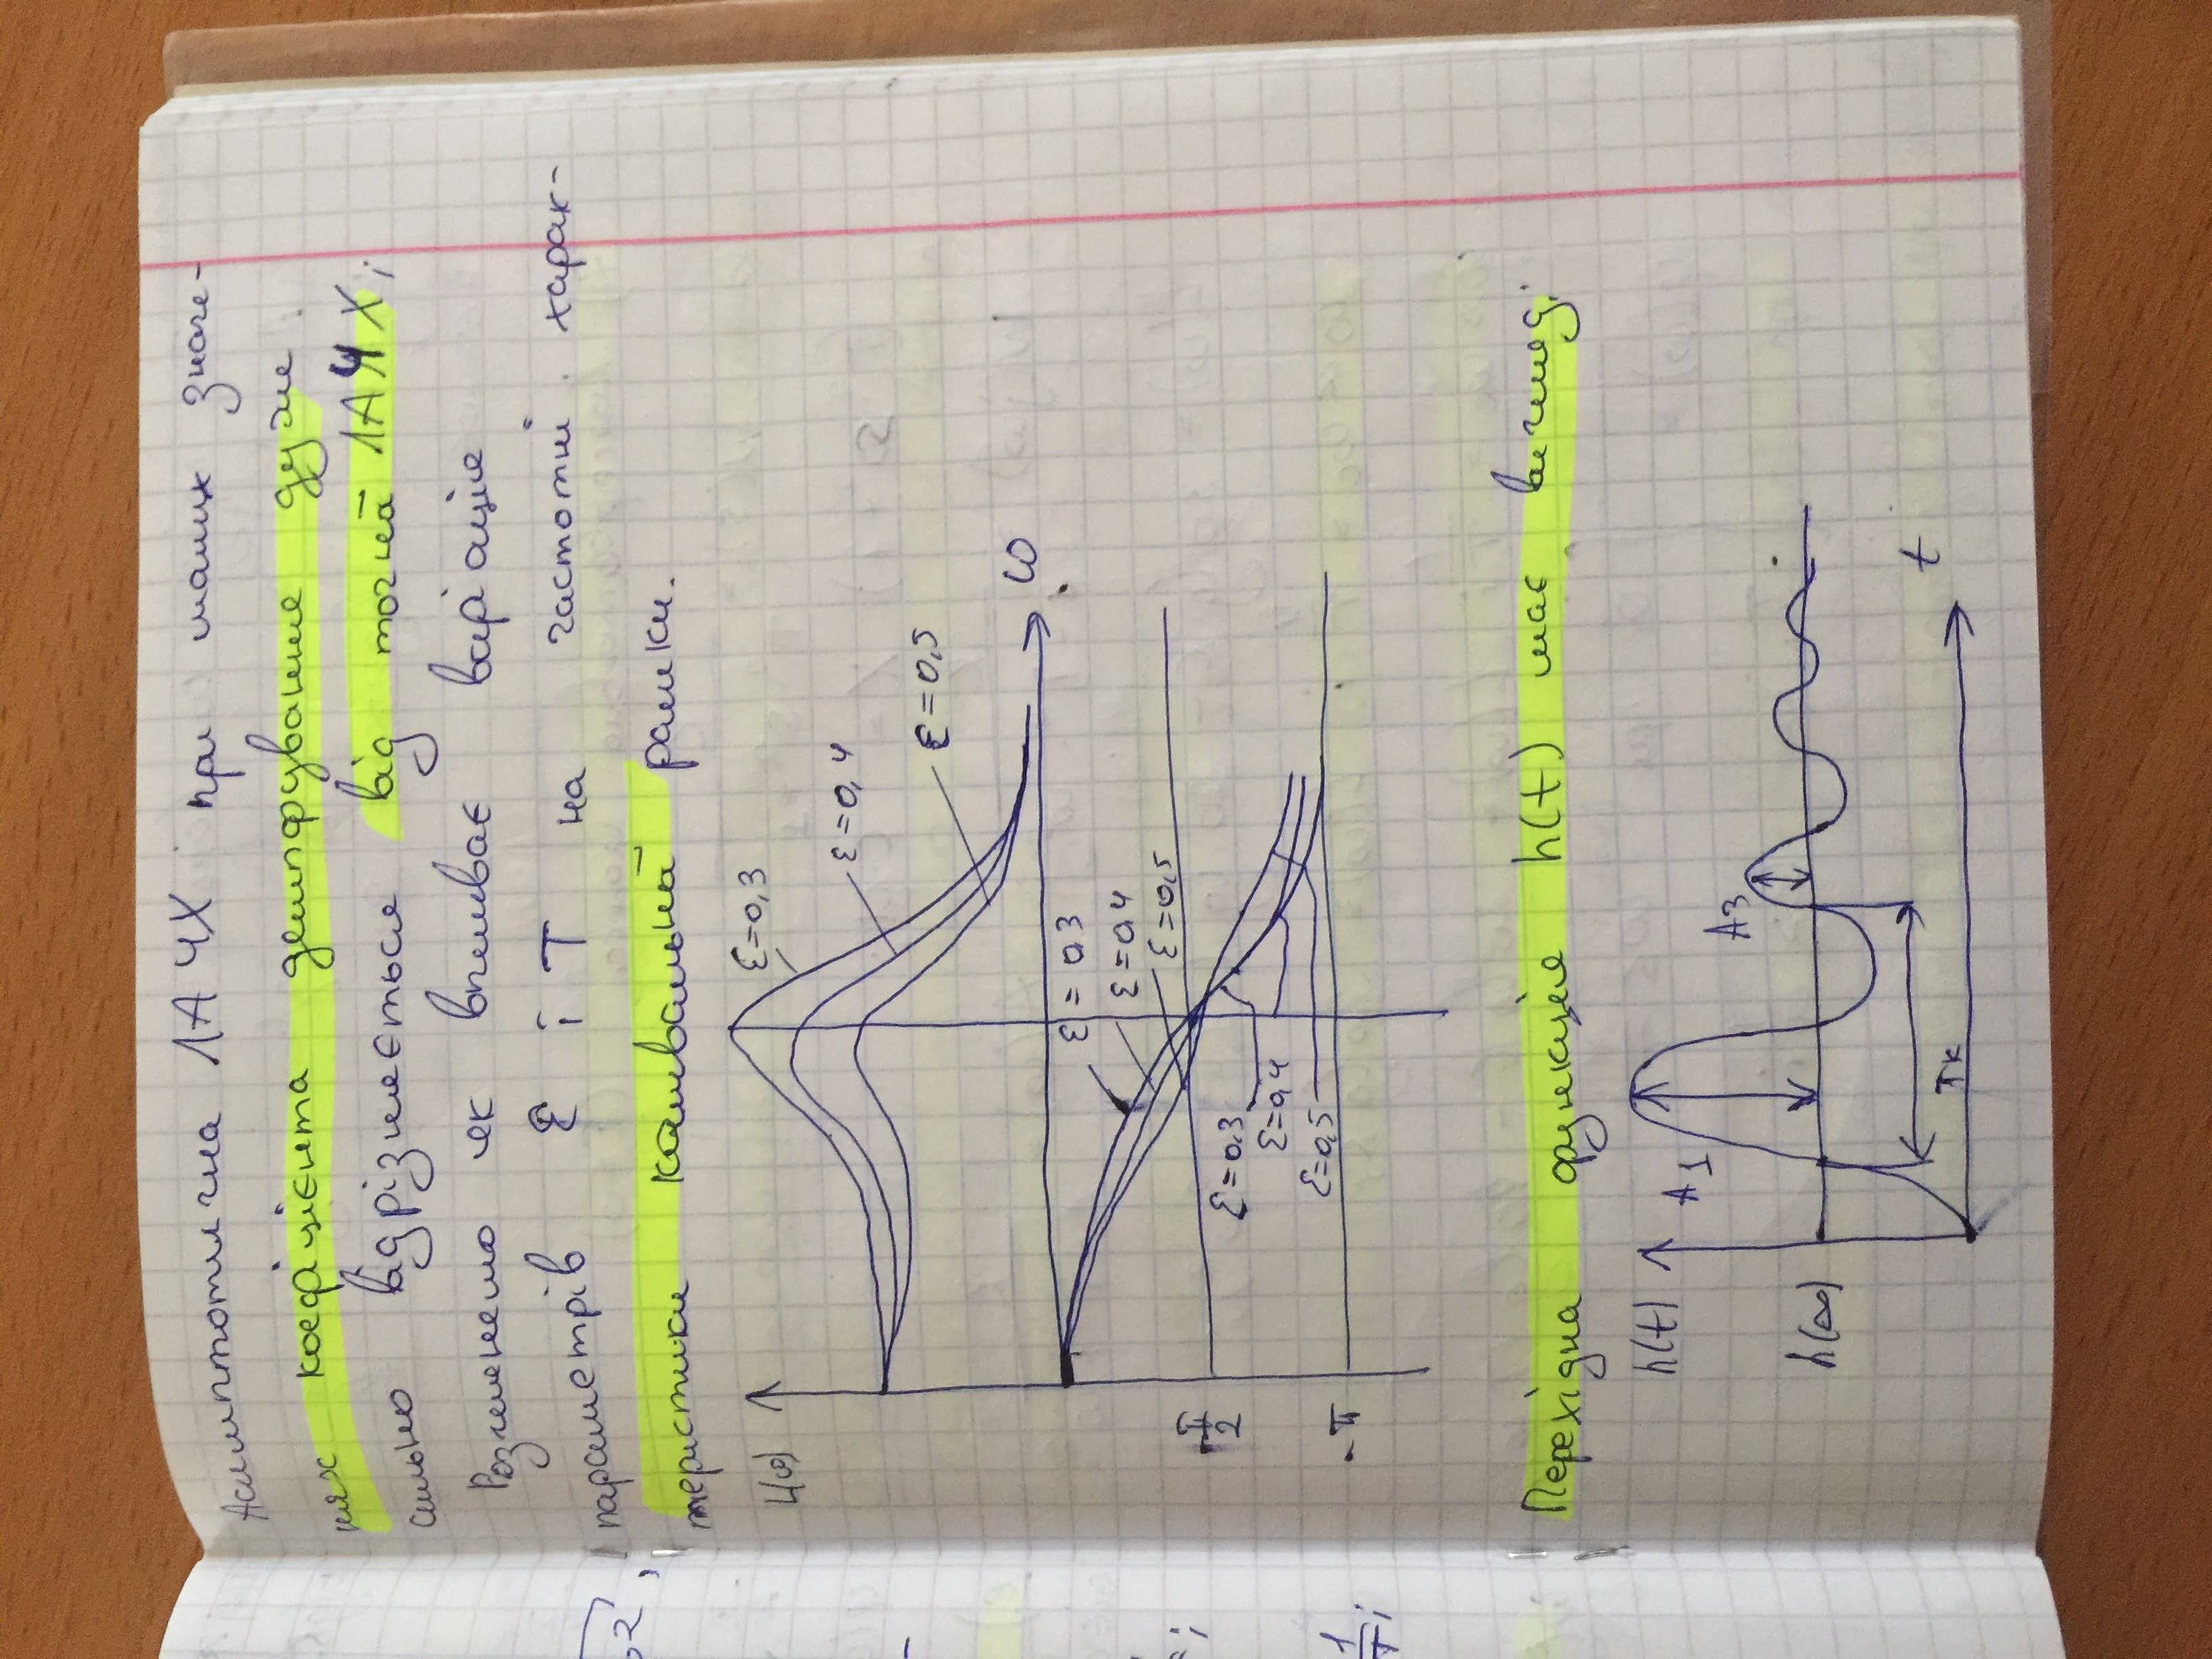 Асимптотична ЛАЧХ при малих значе-
нях коефіцієнта демпфування дуже
сильно відрізняється від точної ЛАЧХ;
Розглянемо як впливає варіація
параметрів ε і T на частотні харак-
теристики коливальної рамки.
L(ω)
ε=0,3
ε=0,4
ε=0,5
ω
ε=0,3
ε=0,4
ε=0,5
-π/2
ε=0,3
ε=0,4
ε=0,5
-π
Перехідна функція h(t) має вигляд:
h(t)
A1
A3
h(∞)
t
Tк